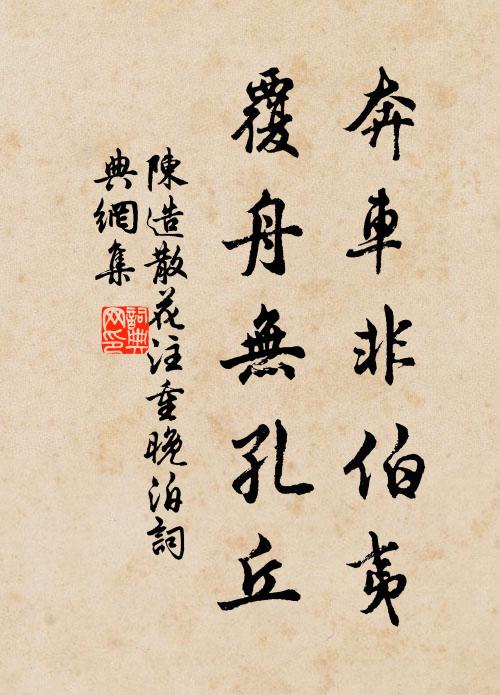 奔車非伯夷
覆舟無孔丘
陳造散花注重晚泊詞
典網集
詞典
网印